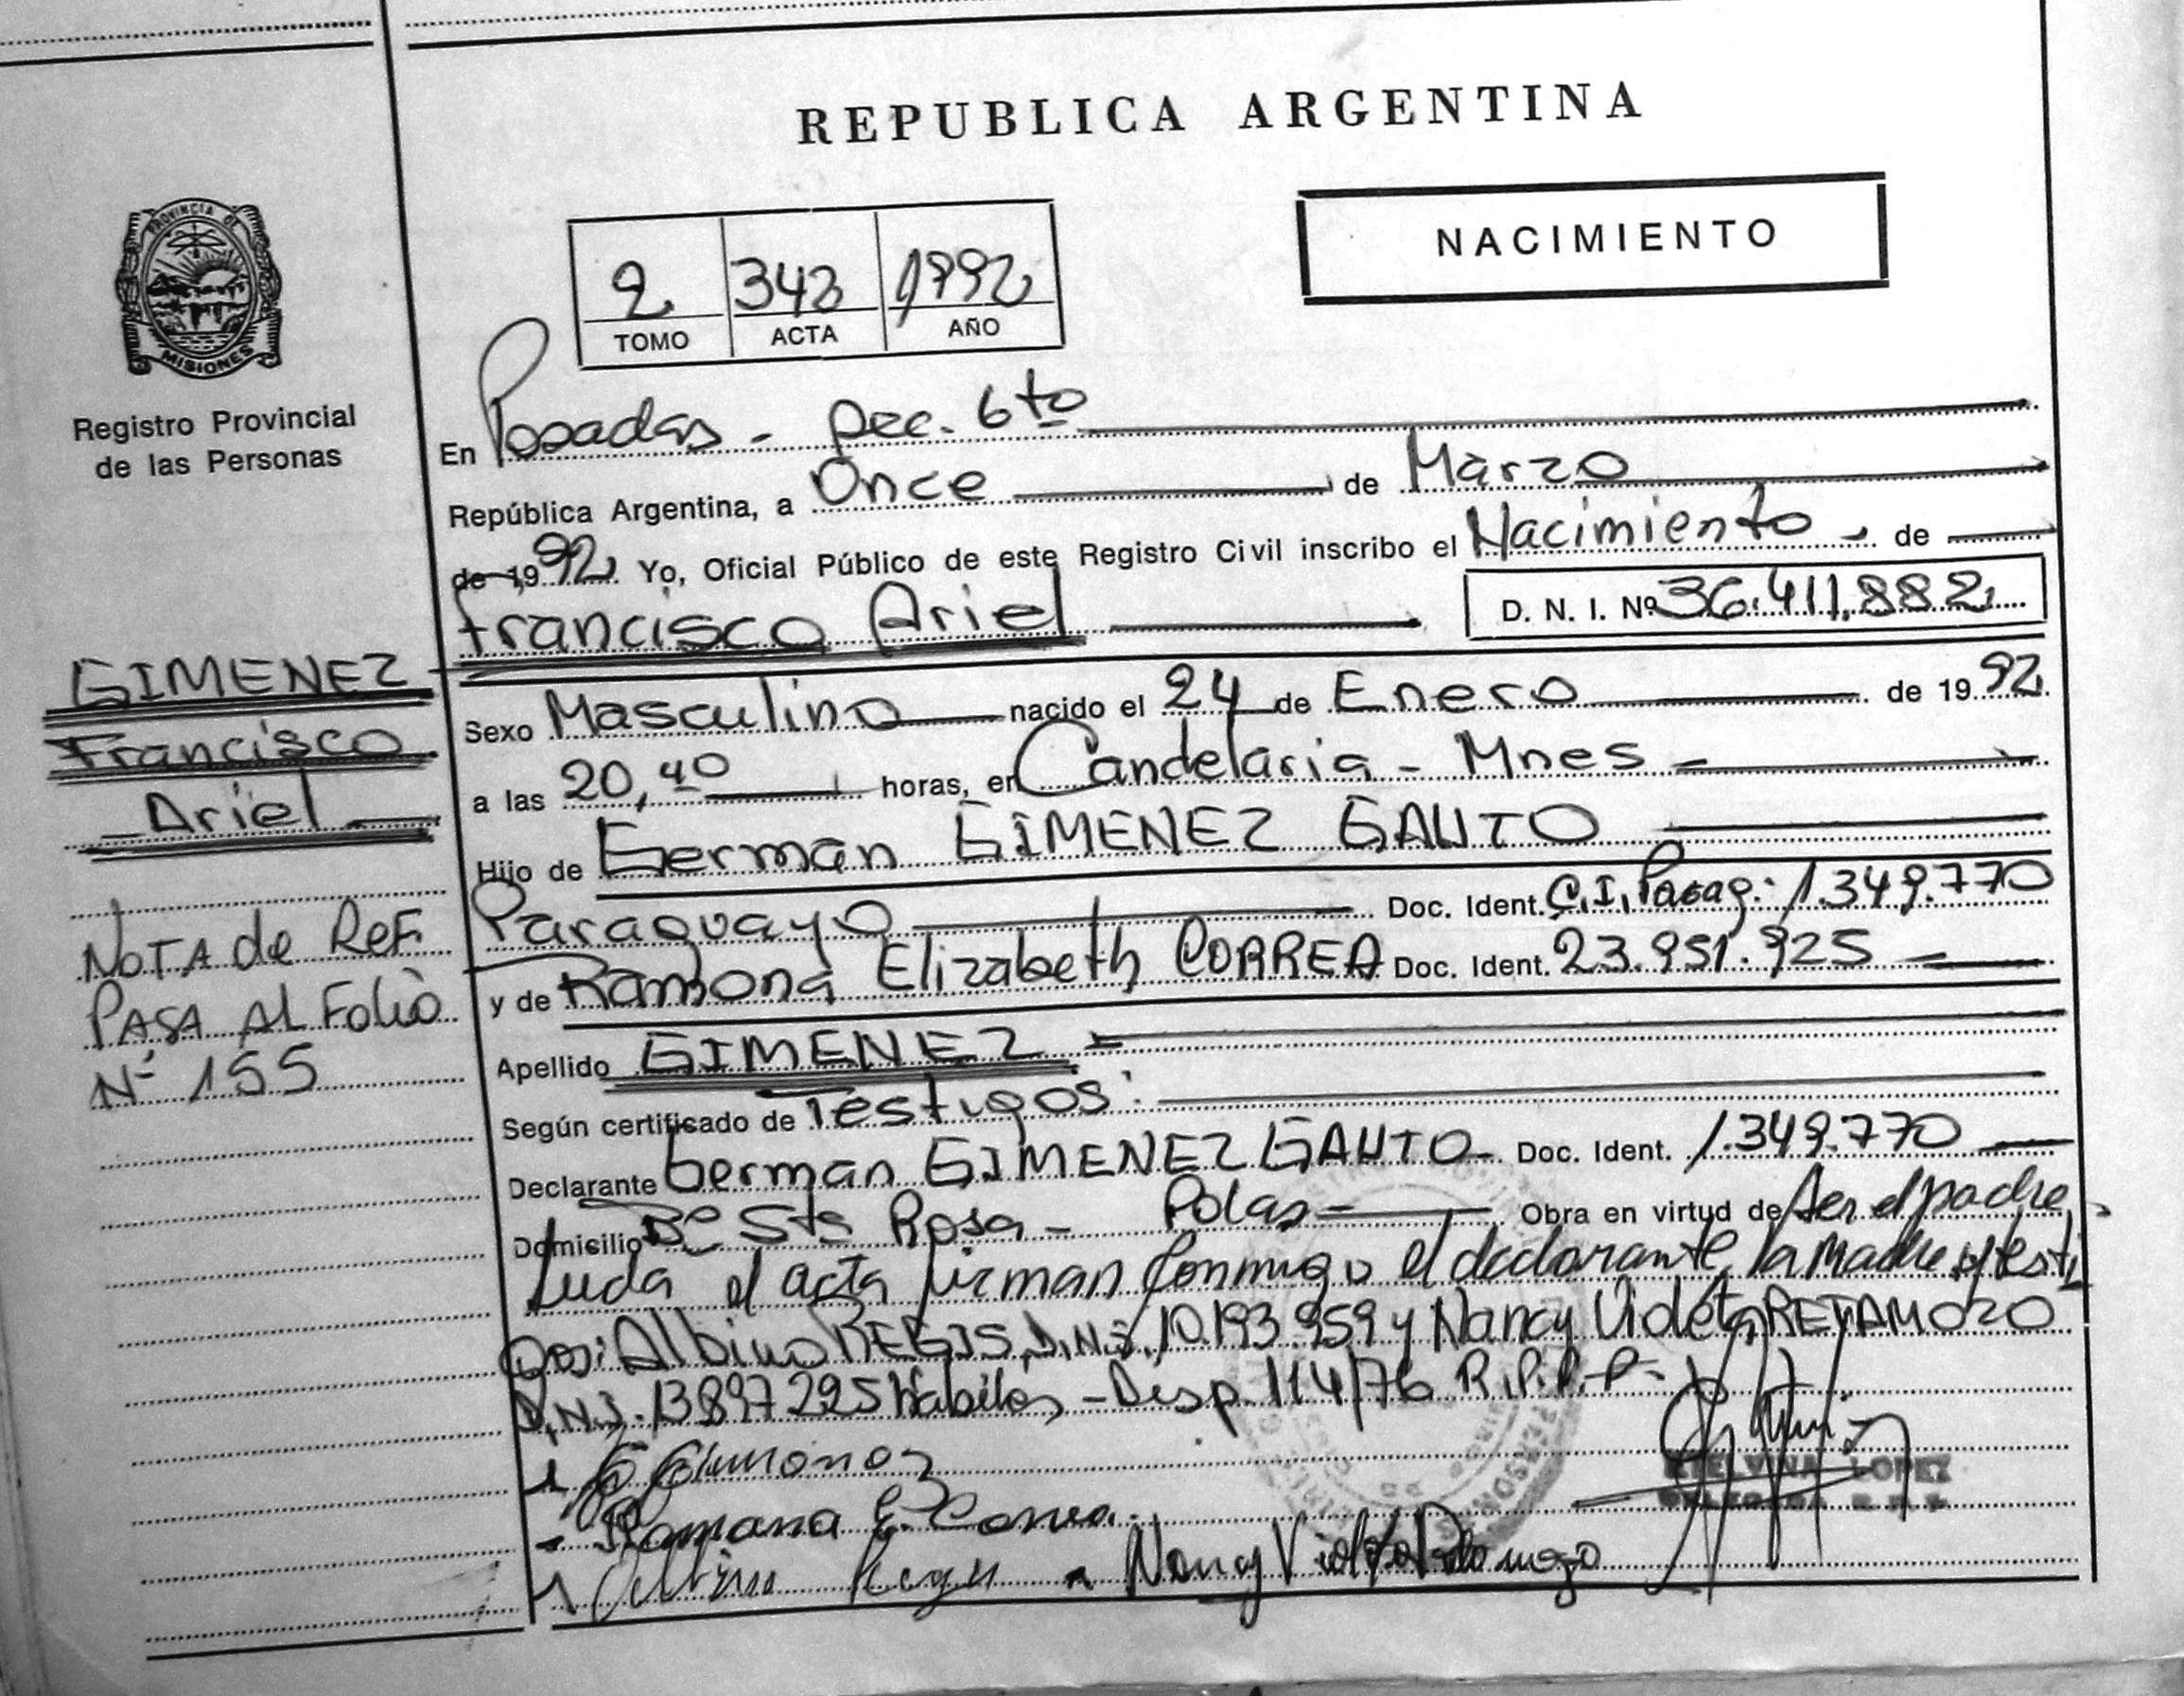 REPUBLICA ARGENTINA
PROVINCIA DE
MISIONES
Registro Provincial
de las Personas
2 343 1992
TOMO ACTA AÑO
NACIMIENTO
En Posadas - Secc. 6to
República Argentina, a Once de Marzo
de 1992 Yo, Oficial Público de este Registro Civil inscribo el Nacimiento de
Francisco Ariel D. N. I. Nº 36.411.882
GIMENEZ
Francisco
Ariel
Sexo Masculino nacido el 24 de Enero de 1992
a las 20,40 horas, en Candelaria - Mnes
Hijo de German GIMENEZ GAUTO
Paraguayo Doc. Ident. C.I. Parag: 1.349.770
y de Ramona Elizabeth CORREA Doc. Ident. 23.951.925
NOTA de REF.
PASA AL Folio
Nº 155
Apellido GIMENEZ
Según certificado de Testigos:
Declarante German GIMENEZ GAUTO Doc. Ident. 1.349.770
Domicilio Bº Sta Rosa - Pdas Obra en virtud de ser el padre
Leida el acta firman conmigo el declarante, la madre y testi
gos: Albino REGIS, D.N.I. 10.193.959 y Nancy Violeta RETAMOZO
D.N.I. 13897225 Habiles - Disp. 114/76 R.P.P.
G Gimenez
Ramona E. Correa
Albino Regis - Nancy Violeta Retamozo
ETELVINA LOPEZ
DELEGADA R. P. P.